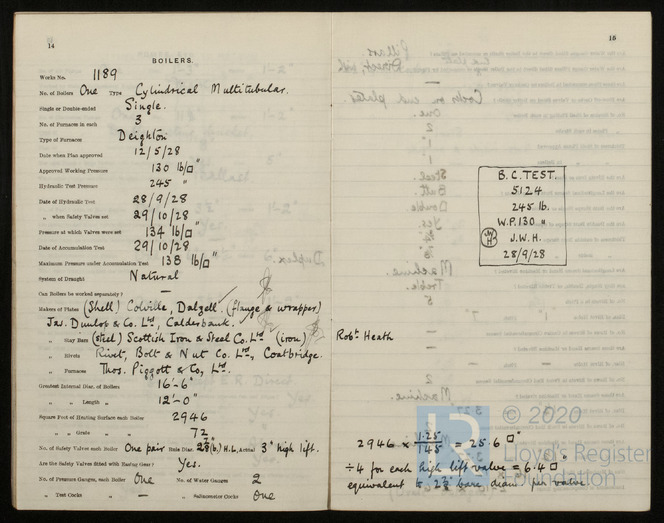 14
BOILERS.
Works No. 1189
No. of Boilers One Type Cylindrical Multitubular.
Single or Double-ended Single.
No. of Furnaces in each 3
Type of Furnaces Deighton
Date when Plan approved 12/5/28
Approved Working Pressure 130 lb/□"
Hydraulic Test Pressure 245 "
Date of Hydraulic Test 28/9/28
" when Safety Valves set 29/10/28
Pressure at which Valves were set 134 lb/□"
Date of Accumulation Test 29/10/28
Maximum Pressure under Accumulation Test 138 lb/□"
System of Draught Natural
Can Boilers be worked separately? —
Makers of Plates (Shell) Colville, Dalzell. (flange & wrapper)
Jas. Dunlop & Co. Ltd, Calderbank.
" Stay Bars (steel) Scottish Iron & Steel Co. Ltd (iron) Robt. Heath
" Rivets Rivet, Bolt & Nut Co. Ltd, Coatbridge.
" Furnaces Thos. Piggott & Co, Ltd.
Greatest Internal Diam. of Boilers 16'-6"
" " Length " 12'-0"
Square Feet of Heating Surface each Boiler 2946
" " Grate " 72
No. of Safety Valves each Boiler One pair Rule Diam. H.L. Actual 3" high lift.
Are the Safety Valves fitted with Easing Gear? Yes.
No. of Pressure Gauges, each Boiler One No. of Water Gauges 2
" Test Cocks " — " Salinometer Cocks One
16
B.C. TEST.
5124
245 lb.
W.P. 130 "
J.W.H.
28/9/28
2946 × 1.25/145 = 25.6 □"
÷ 4 for each high lift valve = 6.4 □"
equivalent to 2 7/8 bare diam. per valve
© 2020
LR
Lloyd's Register
Foundation